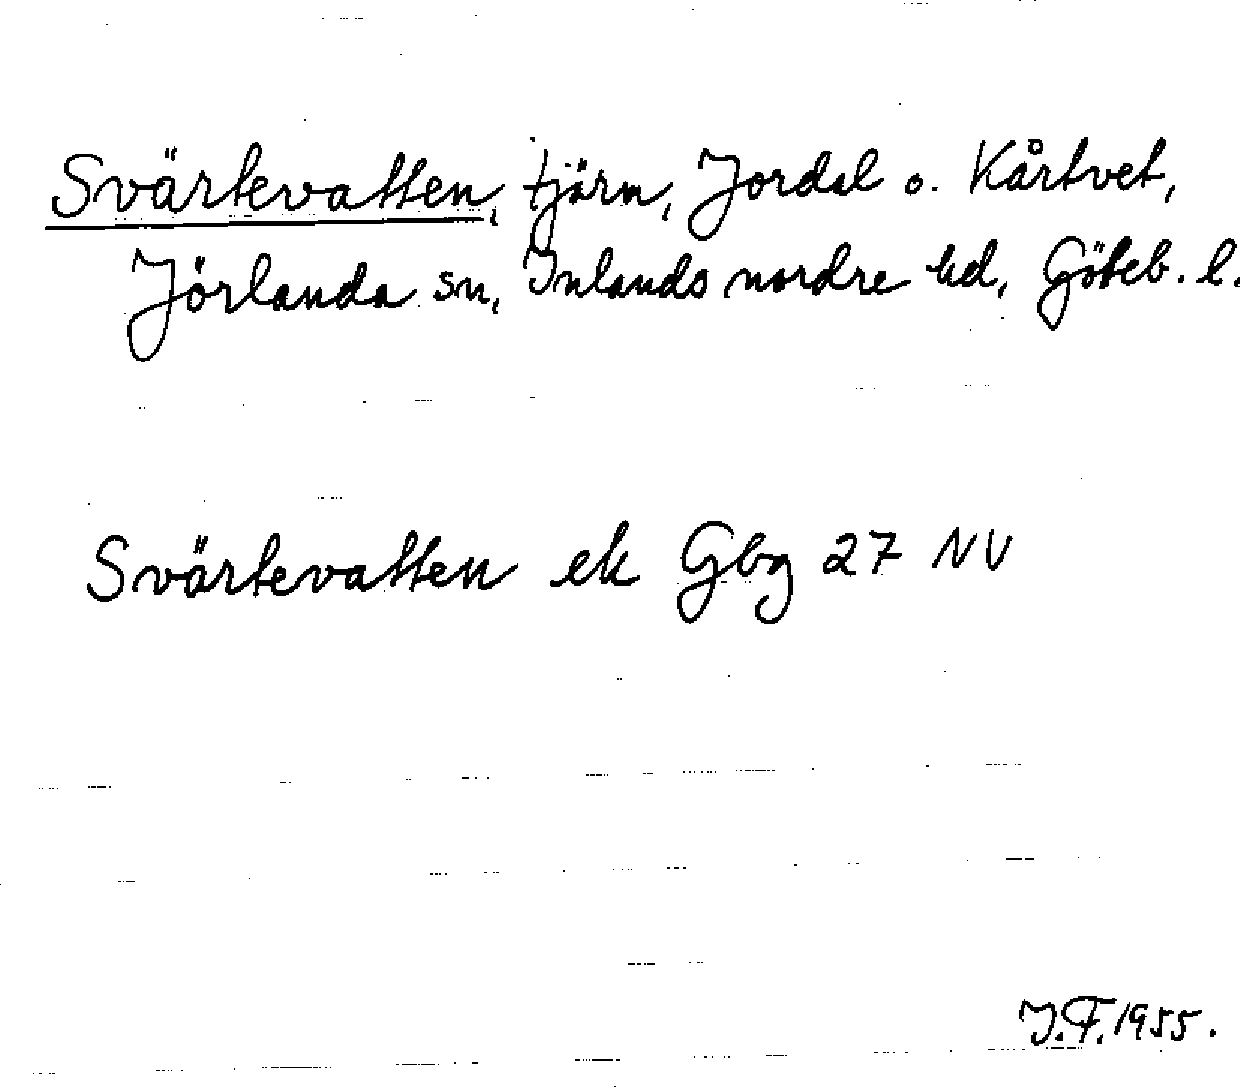 Svärtevatten, tjärn, Jordal o. Kårtvet,
Jörlanda sn, Inlands nordre hd, Göteb. l.
Svärtevatten ek Gbg 27 NV
J.F. 1955.